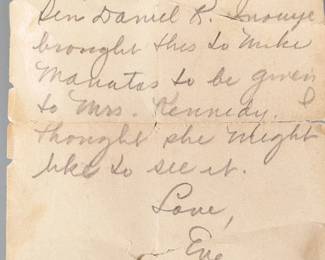 Sen Daniel K. Inouye
brought this to Mike
Manatos to be given
to Mrs. Kennedy. I
thought she might
like to see it.
Love,
Eve